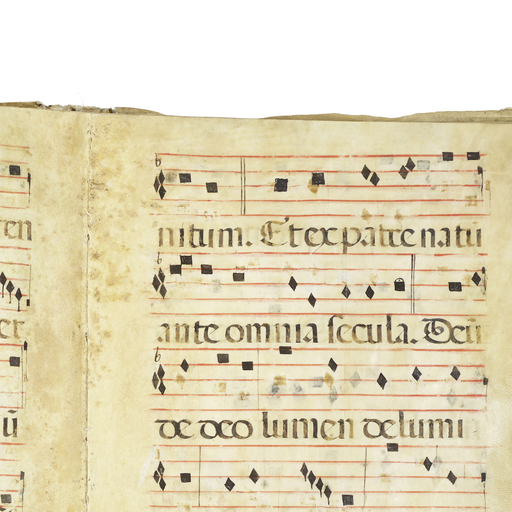 ren
er
ũ
nitum. Et ex patre natũ
ante omnia secula. Deũ
de deo lumen de lumi